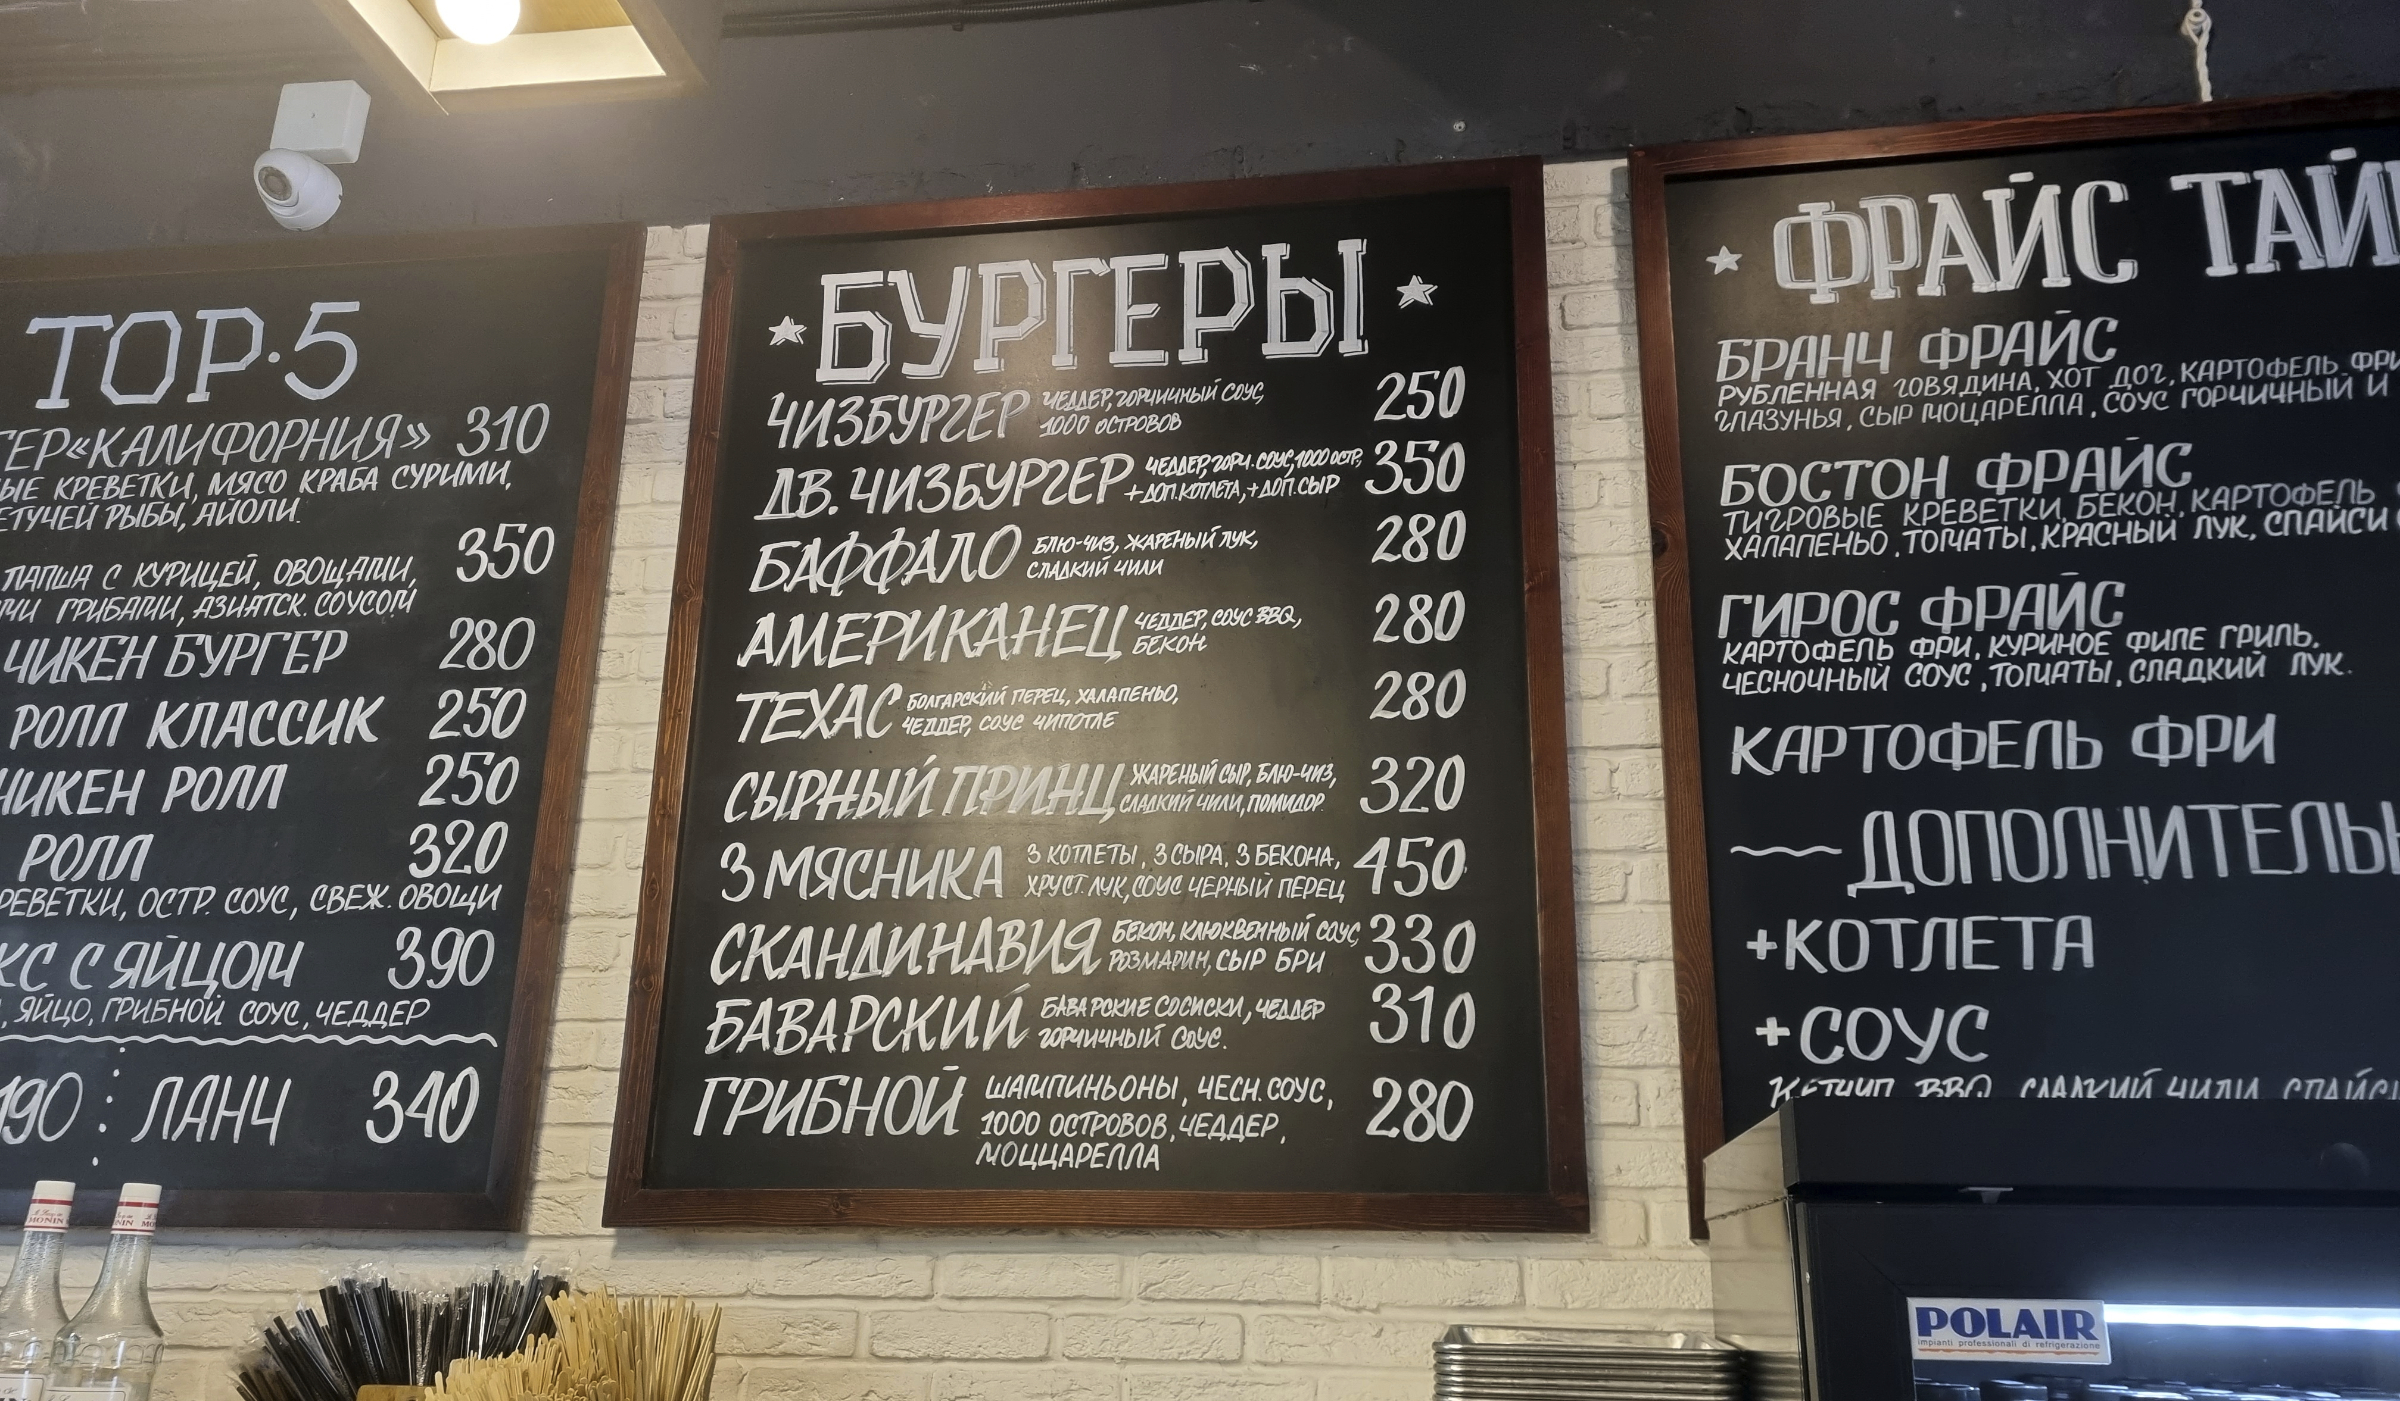 TOP·5
«КАЛИФОРНИЯ» 310
КРЕВЕТКИ, МЯСО КРАБА СУРИМИ,
РЫБЫ, АЙОЛИ.
350
ЛАПША С КУРИЦЕЙ, ОВОЩАМИ,
ГРИБАМИ, АЗИАТСК. СОУСОМ
ЧИКЕН БУРГЕР 280
РОЛЛ КЛАССИК 250
ЧИКЕН РОЛЛ 250
РОЛЛ 320
КРЕВЕТКИ, ОСТР. СОУС, СВЕЖ. ОВОЩИ
С ЯЙЦОМ 390
, ЯЙЦО, ГРИБНОЙ СОУС, ЧЕДДЕР
190 ЛАНЧ 340
БУРГЕРЫ
ЧИЗБУРГЕР ЧЕДДЕР, ГОРЧИЧНЫЙ СОУС, 250
1000 ОСТРОВОВ
ДВ. ЧИЗБУРГЕР ЧЕДДЕР, ГОРЧ. СОУС, 1000 ОСТР., 350
+ ДОП. КОТЛЕТА, + ДОП. СЫР
БАФФАЛО БЛЮ-ЧИЗ, ЖАРЕНЫЙ ЛУК, 280
СЛАДКИЙ ЧИЛИ
АМЕРИКАНЕЦ ЧЕДДЕР, СОУС BBQ, 280
БЕКОН
ТЕХАС БОЛГАРСКИЙ ПЕРЕЦ, ХАЛАПЕНЬО, 280
ЧЕДДЕР, СОУС ЧИПОТЛЕ
СЫРНЫЙ ПРИНЦ ЖАРЕНЫЙ СЫР, БЛЮ-ЧИЗ, 320
СЛАДКИЙ ЧИЛИ, ПОМИДОР
3 МЯСНИКА 3 КОТЛЕТЫ, 3 СЫРА, 3 БЕКОНА, 450
ХРУСТ. ЛУК, СОУС ЧЕРНЫЙ ПЕРЕЦ
СКАНДИНАВИЯ БЕКОН, КЛЮКВЕННЫЙ СОУС, 330
РОЗМАРИН, СЫР БРИ
БАВАРСКИЙ БАВАРСКИЕ СОСИСКИ, ЧЕДДЕР 310
ГОРЧИЧНЫЙ СОУС.
ГРИБНОЙ ШАМПИНЬОНЫ, ЧЕСН. СОУС, 280
1000 ОСТРОВОВ, ЧЕДДЕР,
МОЦЦАРЕЛЛА
ФРАЙС ТАЙ
БРАНЧ ФРАЙС
РУБЛЕННАЯ ГОВЯДИНА, ХОТ ДОГ, КАРТОФЕЛЬ ФРИ
ГЛАЗУНЬЯ, СЫР МОЦАРЕЛЛА, СОУС ГОРЧИЧНЫЙ И
БОСТОН ФРАЙС
ТИГРОВЫЕ КРЕВЕТКИ, БЕКОН, КАРТОФЕЛЬ
ХАЛАПЕНЬО, ТОМАТЫ, КРАСНЫЙ ЛУК, СПАЙСИ
ГИРОС ФРАЙС
КАРТОФЕЛЬ ФРИ, КУРИНОЕ ФИЛЕ ГРИЛЬ,
ЧЕСНОЧНЫЙ СОУС, ТОМАТЫ, СЛАДКИЙ ЛУК.
КАРТОФЕЛЬ ФРИ
ДОПОЛНИТЕЛЬ
+КОТЛЕТА
+СОУС
КЕТЧУП BBQ СЛАДКИЙ ЧИЛИ СПАЙСИ
MONIN
POLAIR
impianti professionali di refrigerazione